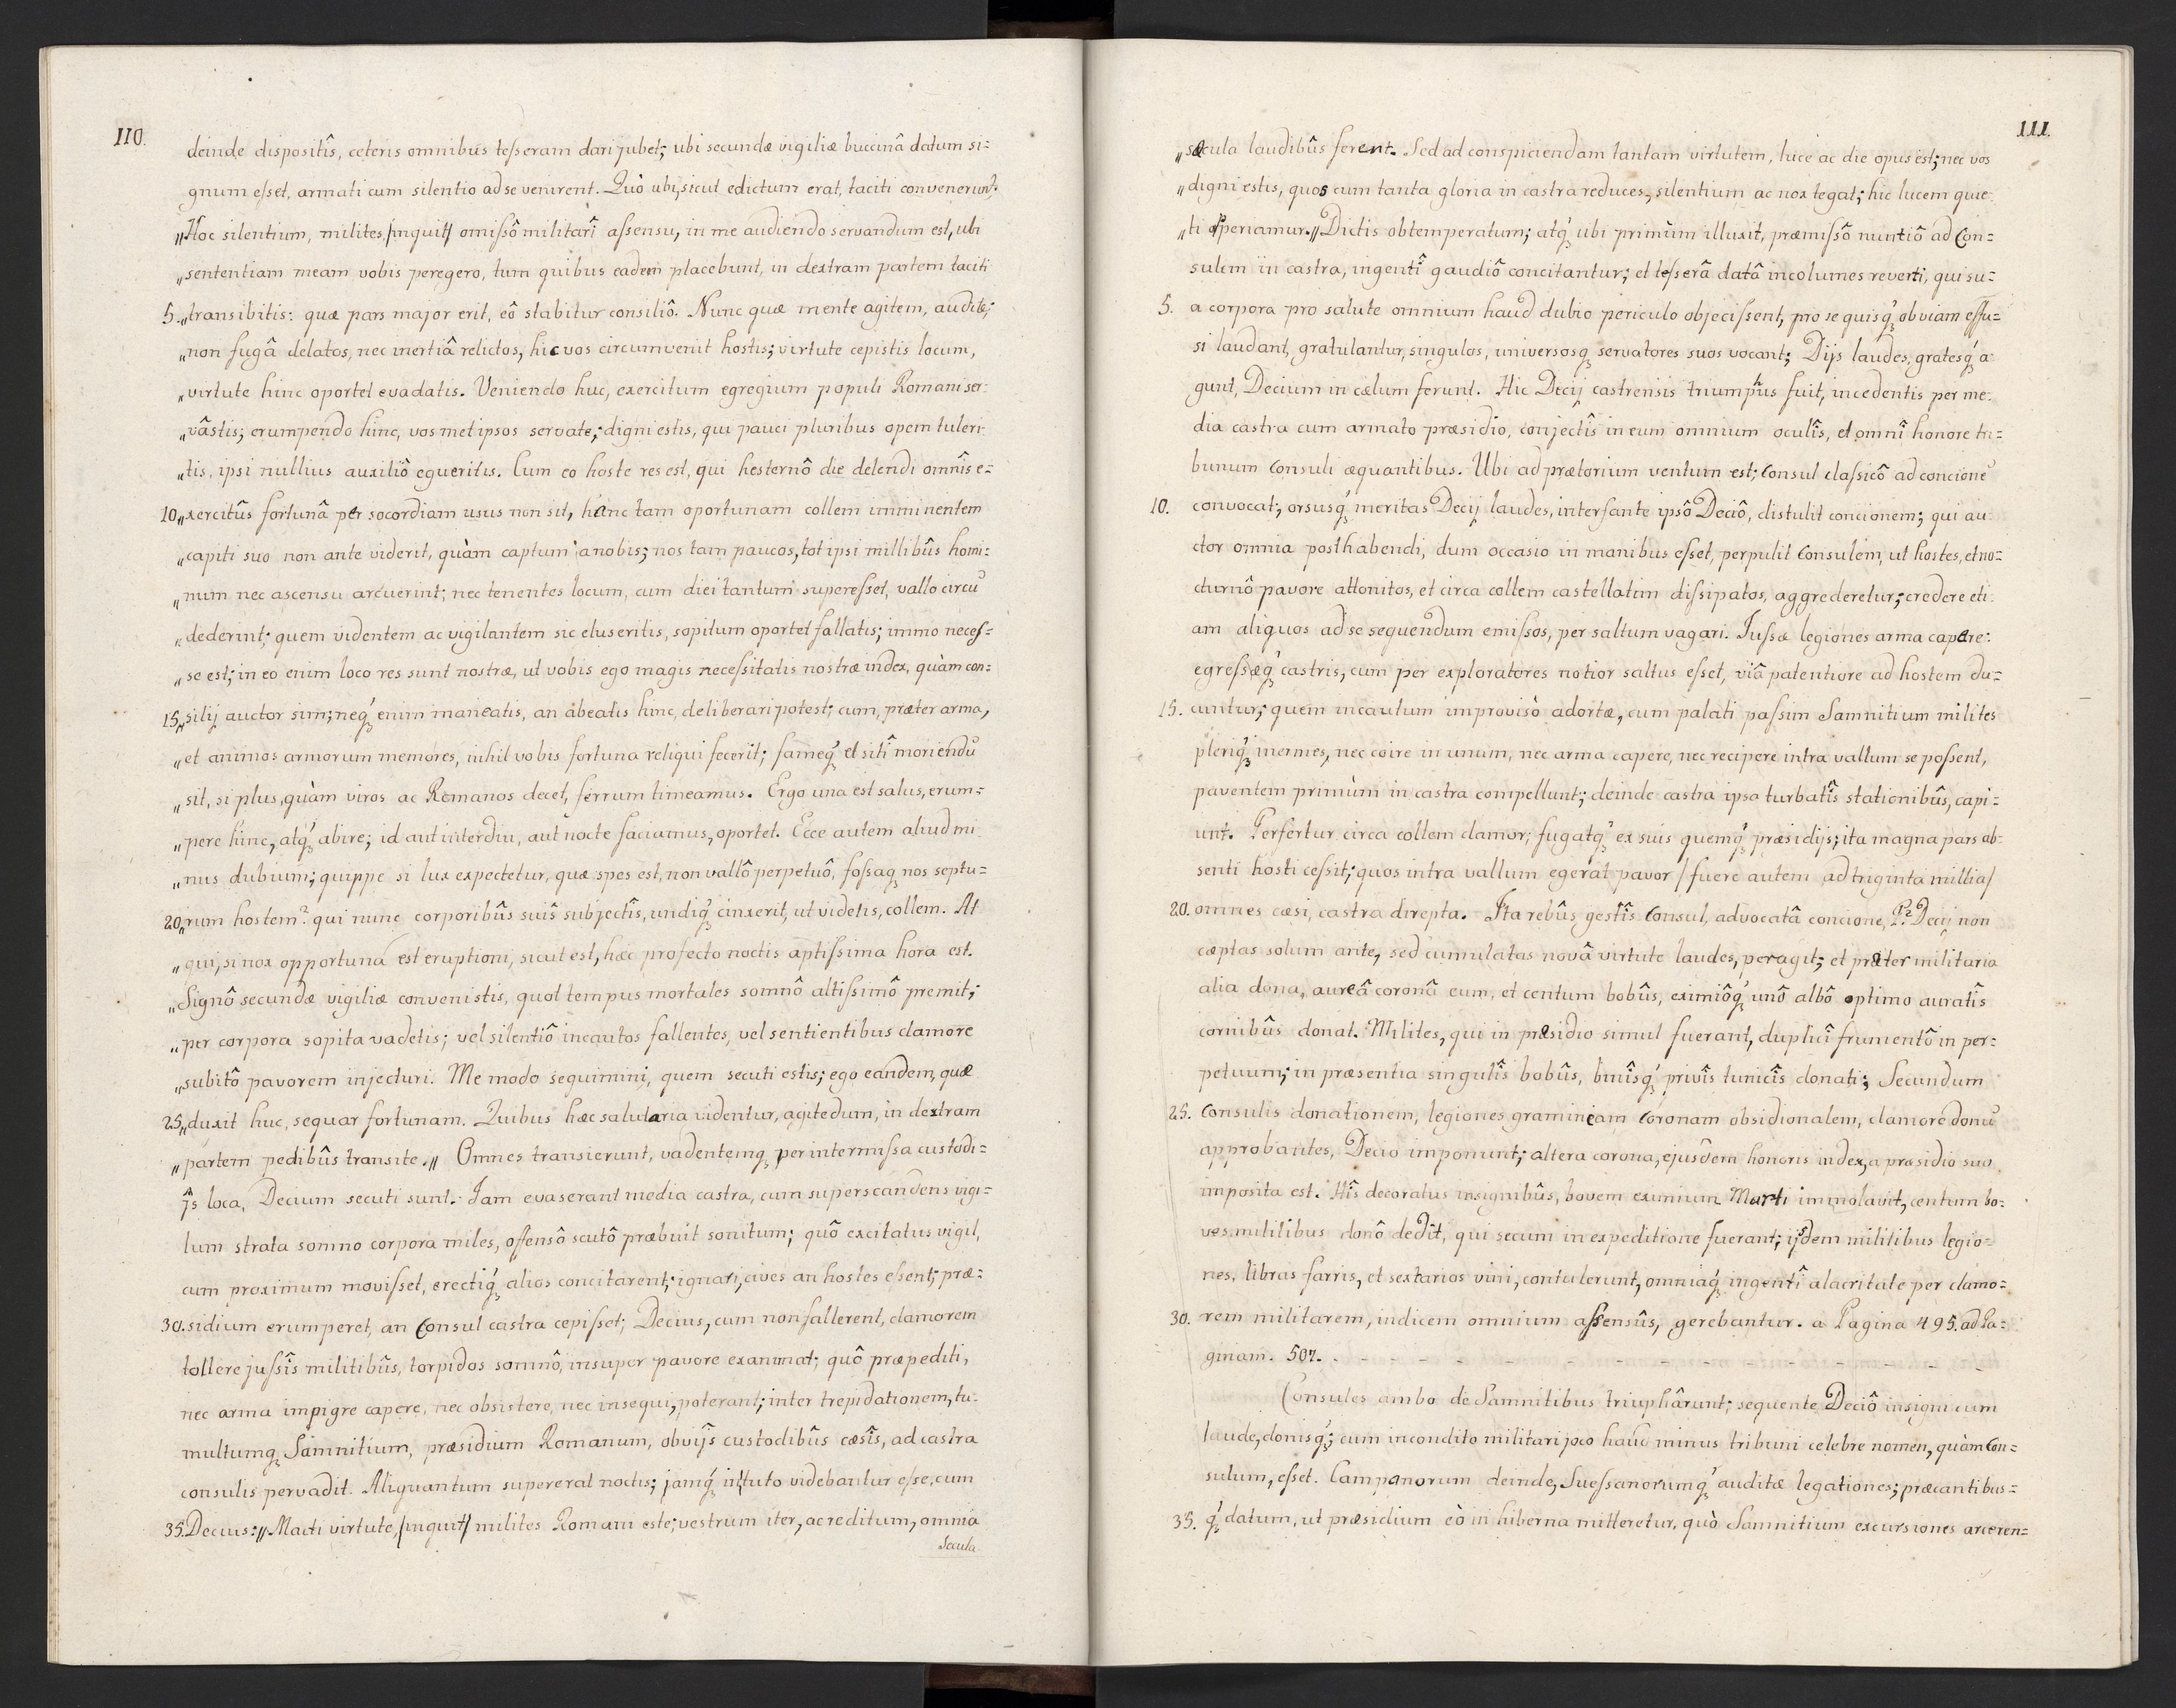 110.
deinde dispositîs, ceteris omnibus teſseram dari jubet; ubi secundæ vigiliæ buccinâ datum si=
gnum eſset, armati cum silentio ad se venirent. Quò ubi, sicut edictum erat, taciti convenerunt.
„Hoc silentium, milites, /inquit/ omiſsô militarî aſsensu, in me audiendo servandum est, ubi
„sententiam meam vobis peregero, tum quibus eadem placebunt, in dextram partem taciti
5. „transibitis: quæ pars major erit, eô stabitur consiliô. Nunc quæ mente agitem, audite;
„non fugâ delatos, nec inertiâ relictos, hic vos circumvenit hostis; virtute cepistis locum,
„virtute hinc oportet evadatis. Veniendo huc, exercitum egregium populi Romani ser:
„vâstis; erumpendo hinc, vosmet ipsos servate; digni estis, qui pauci pluribus opem tuleri:
„tis, ipsi nullius auxiliô egueritis. Cum eo hoste res est, qui hesternô die delendi omnîs e=
10. „xercitûs fortunâ per socordiam usus non sit, hunc tam oportunam collem imminentem
„capiti suo non ante viderit, quàm captum à nobis; nos tam paucos, tot ipsi millibûs homi:
„num nec ascensu arcuerint; nec tenentes locum, cum diei tantum superesſet, vallo circu̅
„dederint; quem videntem ac vigilantem sic eluseritis, sopitum oportet fallatis; immo neceſ=
„se est; in eo enim loco res sunt nostræ, ut vobis ego magis neceſsitatis nostræ index, quàm con=
15. „silij auctor sim; neq́ȝ enim maneatis, an abeatis hinc, deliberari potest; cum, præter arma,
„et animos armorum memores, nihil vobis fortuna reliqui fecerit; fameq́ȝ et sitî moriendu̅
„sit, si plus, quàm viros ac Romanos decet, ferrum timeamus. Ergo una est salus, erum=
„pere hinc, atq́ȝ abire; id aut interdiu, aut nocte faciamus, oportet. Ecce autem aliud mi
„nus dubium; quippe si lux expectetur, quæ spes est, non vallô perpetuô, foſsaqȝ nos septu=
20. „rum hostem? qui nunc corporibûs suîs subjectîs, undiq́ȝ cinxerit, ut videtis, collem. At
„qui, si nox opportuna est eruptioni, sicut est, hæc profecto noctis aptiſsima hora est.
„Signô secundæ vigiliæ convenistis, quod tempus mortales somnô altiſsimô premit;
„per corpora sopita vadetis; vel silentiô incautos fallentes, vel sentientibus clamore
„subitô pavorem injecturi. Me modo sequimini, quem secuti estis; ego eandem, quæ
25. „duxit huc, sequar fortunam. Quibus hæc salutaria videntur, agitedum, in dextram
„partem pedibûs transite.„ Omnes transierunt, vadentemqȝ per intermiſsa custodi=
ĳ̂s loca, Decium secuti sunt. Jam evaserant media castra, cum superscandens vigi=
lum strata somno corpora miles, offensô scutô præbuit sonitum; quô excitatus vigil,
cum proximum moviſset, erectiq́ȝ alios concitarent; ignari, cives an hostes eſsent; præ=
30. sidium erumperet, an Consul castra cepiſset; Decius, cum non fallerent, clamorem
tollere juſsîs militibûs, torpidos somnô, insuper pavore exanimat; quô præpediti,
nec arma impigre capere, nec obsistere, nec insequi, poterant; inter trepidationem, tu=
multumqȝ Samnitium, præsidium Romanum, obvĳ̂s custodibûs cæsîs, ad castra
consulis pervadit. Aliquantum supererat noctis; jamq́ȝ in tuto videbantur eſse, cum
35. Decius: „Macti virtute, /inquit/ milites Romani este; vestrum iter, ac reditum, omnia
Secula
111.
„sæcula laudibûs ferent. Sed ad conspiciendam tantam virtutem, luce ac die opus est; nec vos
„digni estis, quos cum tanta gloria in castra reduces, silentium ac nox tegat; hic lucem quie
„ti operiamur.„ Dictis obtemperatum; atq́ȝ ubi primùm illuxit, præmiſsô nuntiô ad Con=
sulem in castra, ingentî gaudiô concitantur; et teſserâ datâ incolumes reverti, qui su=
5. a corpora pro salute omnium haud dubio periculo objeciſsent, pro se quisq́ȝ obviam effu=
si laudant, gratulantur, singulos, universosqȝ servatores suos vocant; Dijs laudes, gratesq́ȝ a:
gunt, Decium in cælum ferunt. Hic Decij castrensis triumphus fuit, incedentis per me:
dia castra cum armato præsidio, conjectîs in eum omnium oculîs, et omnî honore tri=
bunum Consuli æquantibus. Ubi ad prætorium ventum est; Consul claſsicô ad concione̅
10. convocat; orsusq́ȝ meritas Decij laudes, interfante ipsô Deciô, distulit concionem; qui au
ctor omnia posthabendi, dum occasio in manibus eſset, perpulit Consulem, ut hostes, et no=
cturnô pavore attonitos, et circa collem castellatim diſsipatos, aggrederetur; credere eti
am aliquos ad se sequendum emiſsos, per saltum vagari. Juſsæ legiones arma capere:
egreſsæq́ȝ castris, cum per exploratores notior saltus eſset, viâ patentiore ad hostem du=
15. cuntur; quem incautum improvisò adortæ, cum palati paſsim Samnitium milites
pleriq́ȝ inermes, nec coire in unum, nec arma capere, nec recipere intra vallum se poſsent,
paventem primùm in castra compellunt; deinde castra ipsa turbatîs stationibûs, capi=
unt. Perfertur circa collem clamor; fugatq́ȝ ex suis quemq́ȝ præsidijs; ita magna pars ab=
senti hosti ceſsit; quos intra vallum egerat pavor /fuere autem ad triginta millia/
20. omnes cæsi, castra direpta. Ita rebûs gestîs Consul, advocatâ concione, P: Decij non
cæptas solum ante, sed cumulatas novâ virtute laudes, peragit; et præter militaria
alia dona, aureâ coronâ eum, et centum bobûs, eximiôq́ȝ unô albô optimo auratîs
cornibûs donat. Milites, qui in præsidio simul fuerant, duplicî frumentô in per=
petuum; in præsentia singulîs bobûs, binîsq́ȝ privîs tunicîs donati; Secundum
25. Consulis donationem, legiones gramineam Coronam obsidionalem, clamore donu̅
approbantes, Decio imponunt; altera corona, ejusdem honoris index, a præsidio suo
imposita est. Hîs decoratus insignibûs, bovem eximium Marti immolavit, centum bo=
ves militibus donô dedit, qui secum in expeditione fuerant; ijsdem militibus legio=
nes, libras farris, et sextarios vini, contulerunt, omniaq́ȝ ingentî alacritate per clamo=
30. rem militarem, indicem omnium aſsensûs, gerebantur. a Pagina 495. ad Pa=
ginam. 507. . - - - - - - - - - - - - - -
Consules ambo de Samnitibus triuphârunt; sequente Deciô insigni cum
laude, donisq́ȝ; cum incondito militari joco haud minus tribuni celebre nomen, quàm Con=
sulum, eſset. Campanorum deinde, Sueſsanorumq́ȝ auditæ legationes; præcantibus=
35. q́ȝ datum, ut præsidium eò in hiberna mitteretur, quò Samnitium excursiones arceren=